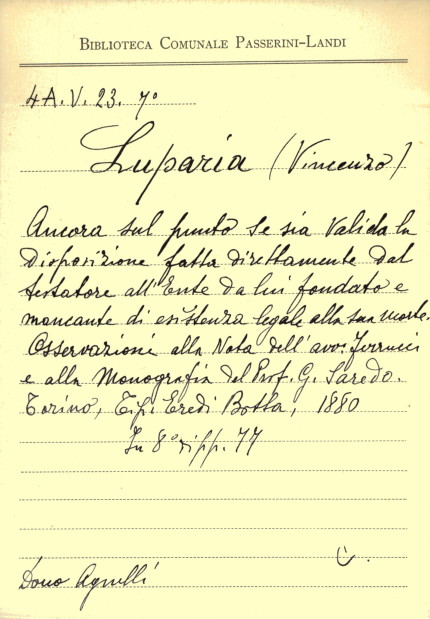 BIBLIOTECA COMUNALE PASSERINI-LANDI
4A. V. 23. 7º
Luparia (Vincenzo)
Ancora sul punto se sia valida la
Disposizione fatta direttamente dal
testatore all'Ente da lui fondato e
mancante di esistenza legale alla sua morte.
Osservazioni alla Nota dell'avv: Ferrucci
e alla Monografia del Prof. G. Saredo.
Torino, Tip. Eredi Botta, 1880
In 8º di pp. 77
Dono Agnelli